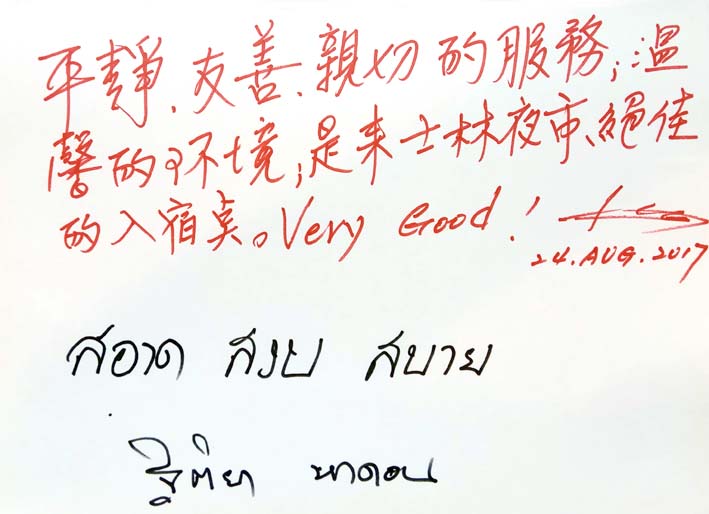 平靜、友善、親切的服務；溫
馨的环境，是来士林夜市、絕佳
的入宿点。Very Good！
24.AUG.2017
สอาด สงบ สบาย
ฐิติยา